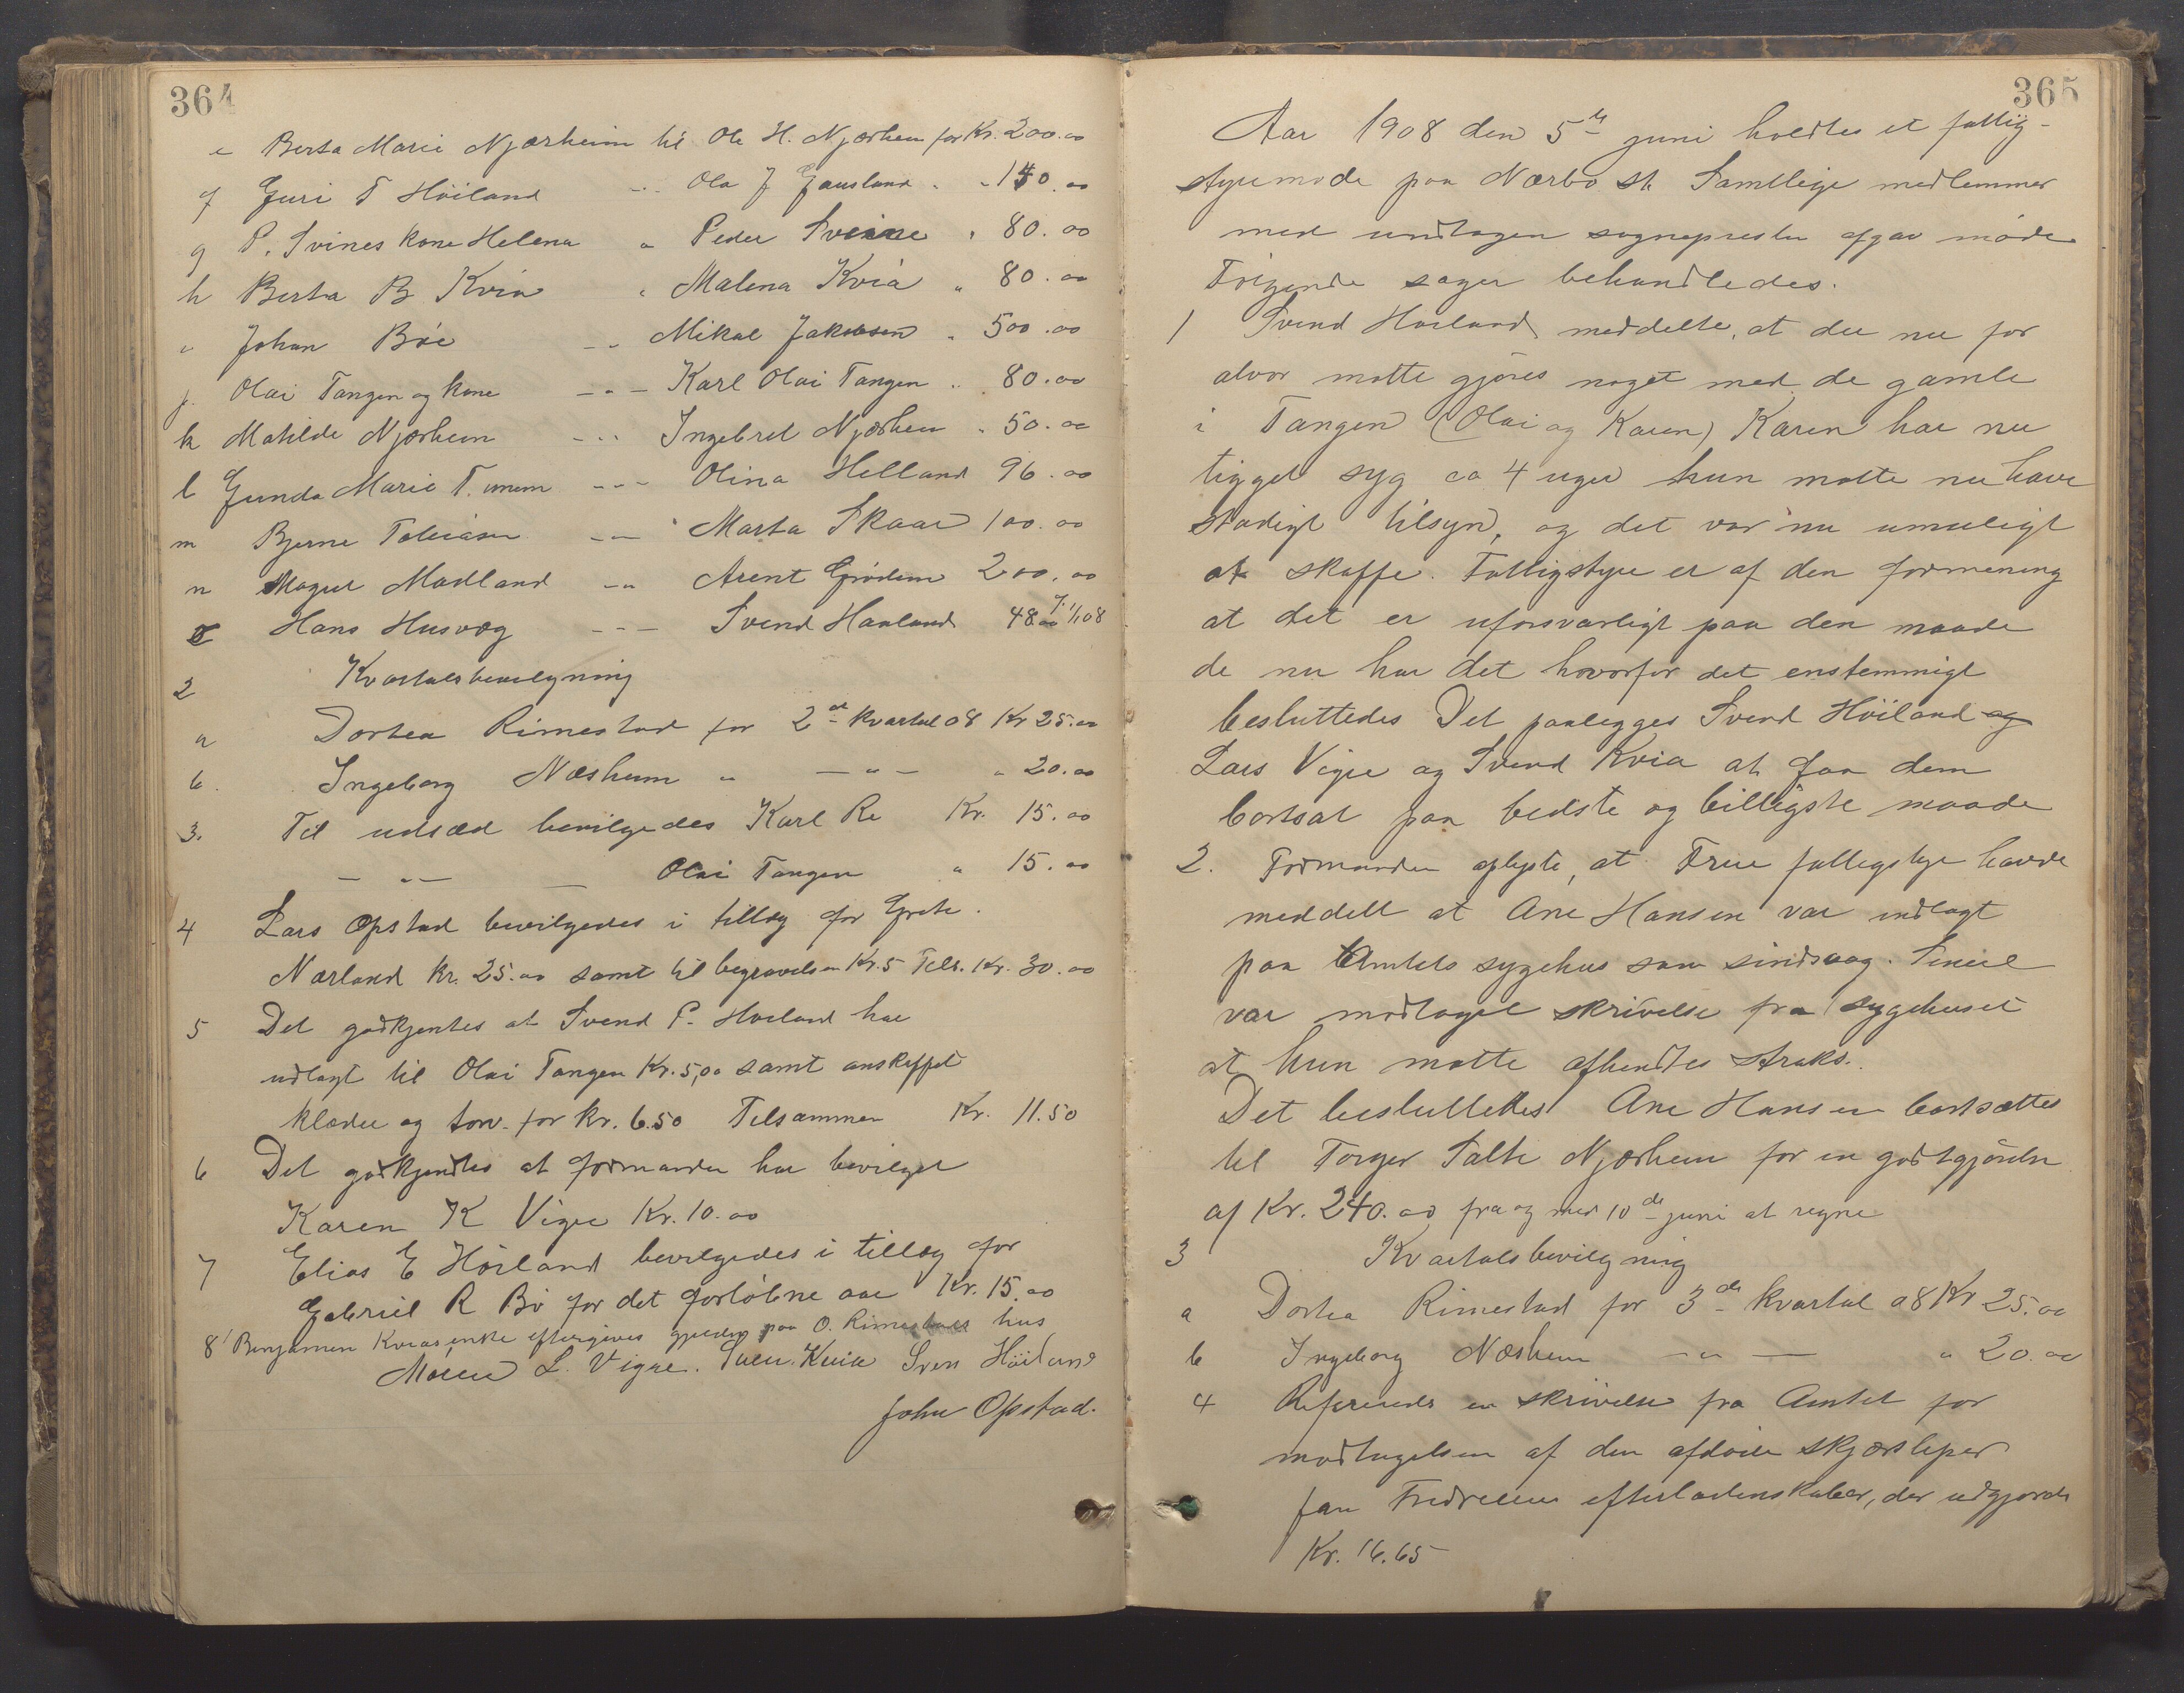 364
e Berta Marie Njærheim til Ole H. Njærhem for Kr. 200.00
f Guri T Höiland -"- Ola J Gausland " " 140.00
g P. Svines kone Helena " Peder Svine " 80.00
h Berta B. Kvia " Malena Kvia " 80.00
i Johan Böe -"- Mikal Jakobsen " 500.00
j. Olai Tangen og kone -"- Karl Olai Tangen " 80.00
k Matilde Njærhem -"- Ingebret Njærhem " 50.00
l Gunda Marie T. -"- Olina Helland 96.00
m Bjerne Tobiasen -"- Marta Skaar 100.00
n Magret Madland -"- Arent Grödem 200.00
o Hans Husvæg -"- Svend Haaland 48.00 1/1 08
2 Kvartalsbevilgning
a Dortea Rimestad for 2det kvartal 08 Kr 25.00
b. Ingeborg Næshem " -"- " 20.00
3. Til udsæd bevilgedes Karl Re Kr. 15.00
-"- — Olai Tangen " 15.00
4 Lars Opstad bevilgedes i tillæg for Grete
Nærland kr. 25.00 samt til begravelsen Kr. 5 Tils. Kr. 30.00
5 Det godkjentes at Svend P. Höiland har
udlagt til Olai Tangen Kr. 5,00 samt anskaffet
klæder og torv for kr. 6.50 Tilsammen Kr. 11.50
6 Det godkjendtes at formanden har bevilget
Karen K Vigre Kr. 10.00
7 Elias E Höiland bevilgedes i tillæg for
Gabriel R Bö for det forlöbne aar Kr. 15.00
8 Benjamin Kvias enke eftergives gjelden paa O. Rimestads hus
L. Vigre. Sven Kvia Sven Höiland
John Opstad.
365
Aar 1908 den 5te juni holdtes et fattig-
styremöde paa Nærbö st. Samtlige medlemmer
med undtagen sognepresten afgav möde
Fölgende sager behandledes.
1 Svend Höiland meddelte, at der nu for
alvor motte gjöres noget med de gamle
i Tangen (Olai og Karen) Karen har nu
ligget syg ca 4 uger hun motte nu have
stadigt tilsyn, og det var nu umuligt
at skaffe. Fattigstyre er af den formening
at det er uforsvarligt paa den maade
de nu har det hvorfor det enstemmigt
besluttedes Det paalegges Svend Höiland og
Lars Vigre og Svend Kvia at faa dem
bortsat paa bedste og billigste maade
2. Formanden oplyste, at Time fattigstyre havde
meddelt at Ane Hansen var indlagt
paa Amtets sygehus som sindsvag. Senere
var modtaget skrivelse fra sygehuset
at hun motte afhendtes straks.
Det besluttedes Ane Hansen bortsættes
til Torger Salte Njærhem for en godtgjörelse
af Kr. 240.00 fra og med 10de juni at regne
3 Kvartalsbevilgning
a Dortea Rimestad for 3de kvartal 08 Kr 25.00
b Ingeborg Næshem -"- — " 20.00
4 Refereredes en skrivelse fra Amtet for
modtagelsen af den afdöde skjærsleper
Jan Fredriksens efterladenskaber, der udgjorde
Kr. 16.65